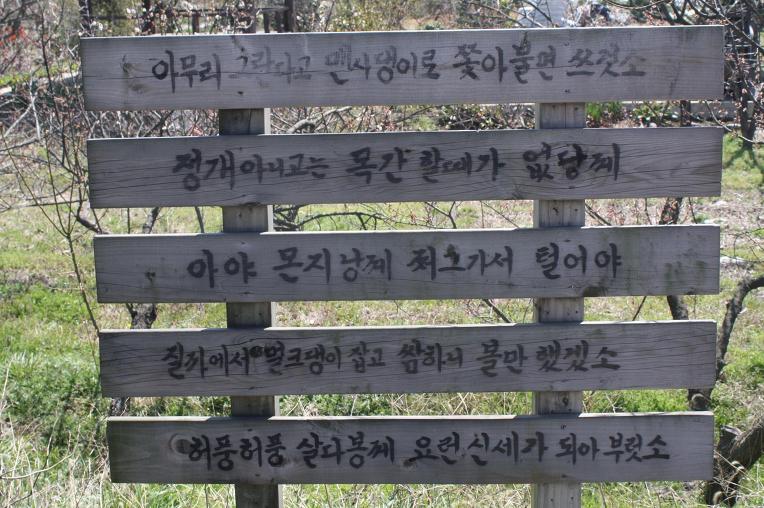 아무리 그란다고 멘사댕이로 쫓아불면 쓰럿소
정개아니고는 목간 할때가 없당께
아야 몬지낭께 쩌그가서 털어야
질까에서 멀크댕이 잡고 쌈하니 볼만 했겠소
허풍허풍 살다봉께 요런 신세가 되아 부럿소